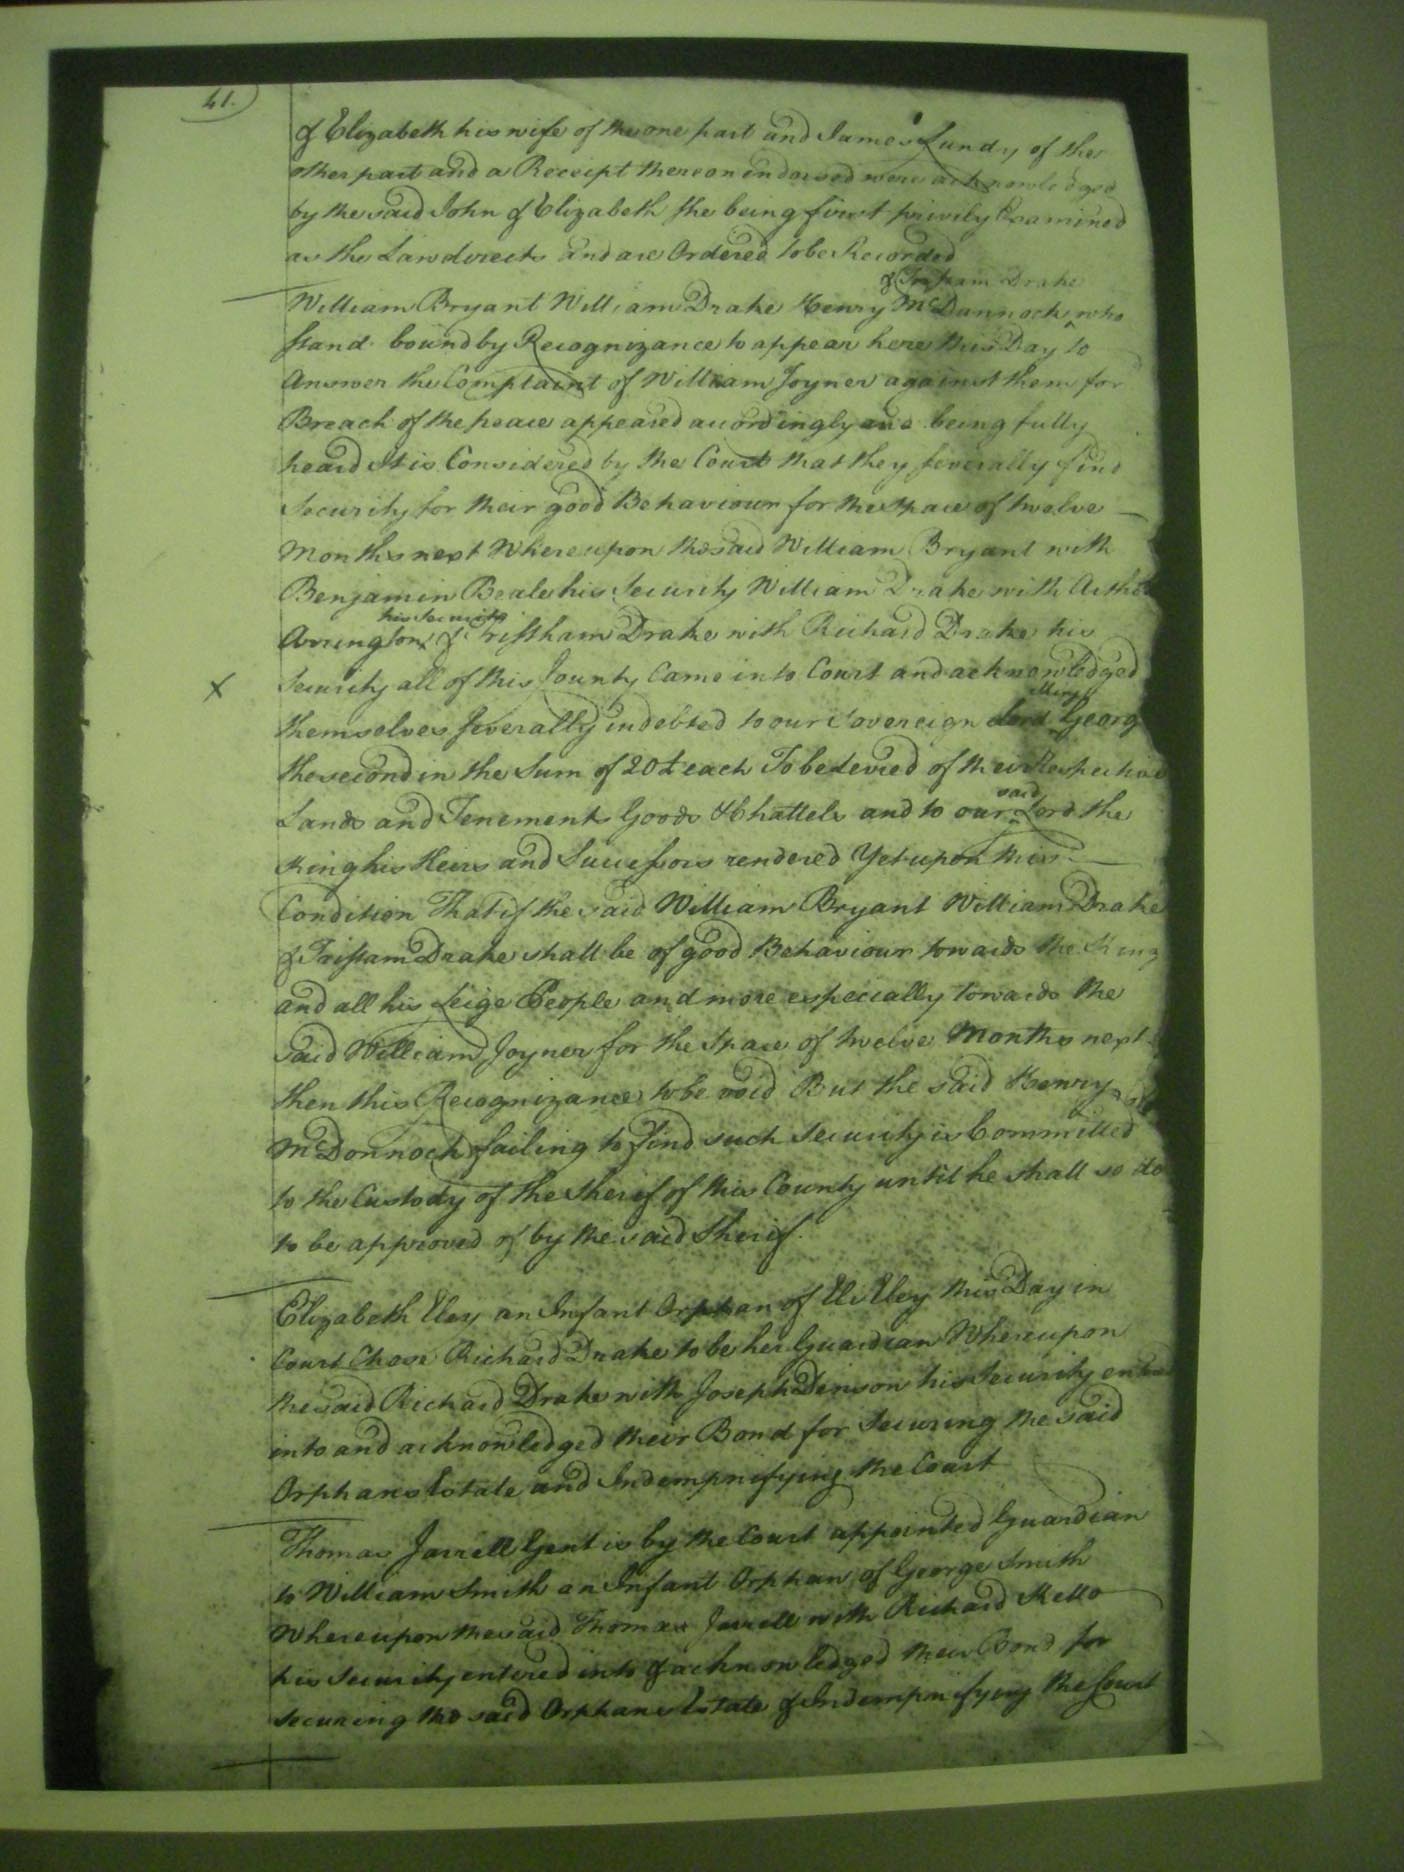 41.
& Elizabeth his wife of the one part and James Lundy of the
other part and a Receipt thereon indorsed were acknowledged
by the said John & Elizabeth she being first privily Examined
as the Law directs and are Ordered to be Recorded
& Tristram Drake
William Bryant William Drake Henry McDannock ^ who
stand bound by Recognizance to appear here this Day to
Answer the Complaint of William Joyner against them for
Breach of the peace appeared accordingly and being fully
heard It is Considered by the Court that they severally find
Security for their good Behaviour for the space of twelve
Months next Whereupon the said William Bryant with
Benjamin Beale his Security William Drake with Arthur
his Security
Arrington ^ & Tristham Drake with Richard Drake his
x Security all of this County Came into Court and acknowledged
King
themselves severally indebted to our Sovereign Lord George
the second in the Sum of 20£ each To be Levied of their Respective
said
Lands and Tenements Goods & Chattels and to our ^ Lord the
King his Heirs and Successors rendered Yet upon this
Condition That if the said William Bryant William Drake
& Tristam Drake shall be of good Behaviour towards the King
and all his Leige People and more especially towards the
said William Joyner for the Space of twelve Months next
then this Recognizance to be void But the said Henry
McDonnock failing to find such Security is Committed
to the Custody of the Sherif of this County until he shall so do
to be approved of by the said Sherif.
Elizabeth Eley an Infant Orphan of Eli Eley this Day in
Court Chose Richard Drake to be her Guardian Whereupon
the said Richard Drake with Joseph Denson his Security entred
into and acknowledged their Bond for Securing the said
Orphans Estate and Indempnifying the Court
Thomas Jarrell Gent is by the Court appointed Guardian
to William Smith an Infant Orphan of George Smith
Whereupon the said Thomas Jarrell with Richard Kello
his Security entered into & acknowledged their Bond for
securing the said Orphans Estate & Indempnifying the Court